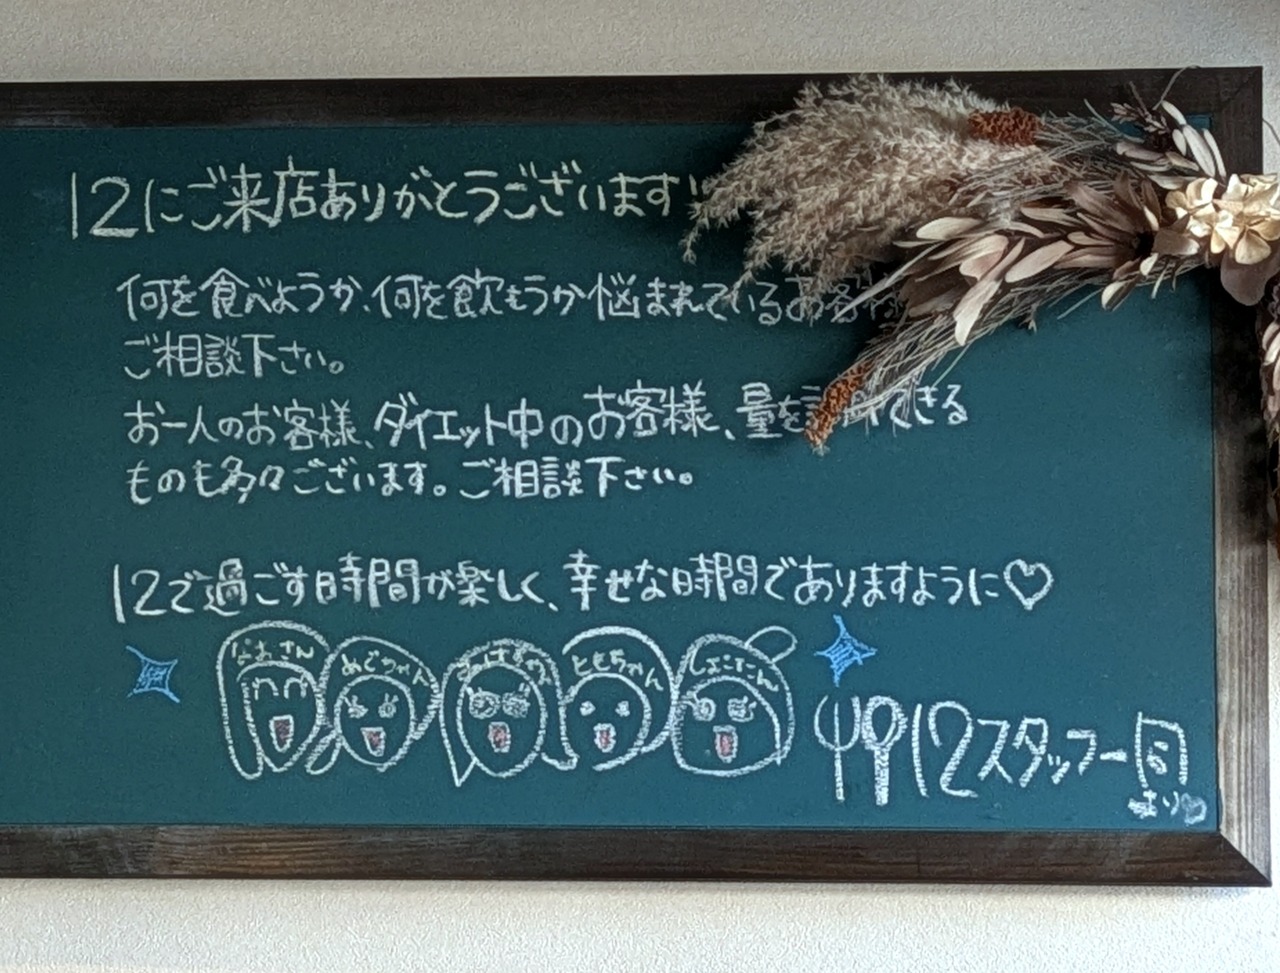 12にご来店ありがとうございます
何を食べようか、何を飲もうか悩まれているお客様
ご相談下さい。
お一人のお客様、ダイエット中のお客様、量を できる
ものも多々ございます。ご相談下さい。
12で過ごす時間が楽しく、幸せな時間でありますように♡
なおさん めぐちゃん ともちゃん しょこたん
12スタッフ一同
より♡